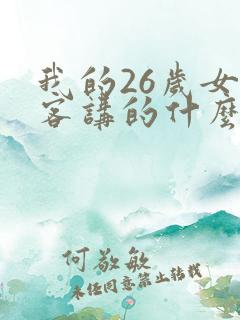 我的26歲女
客講的什麼
何敬敏
未経同意禁止转载